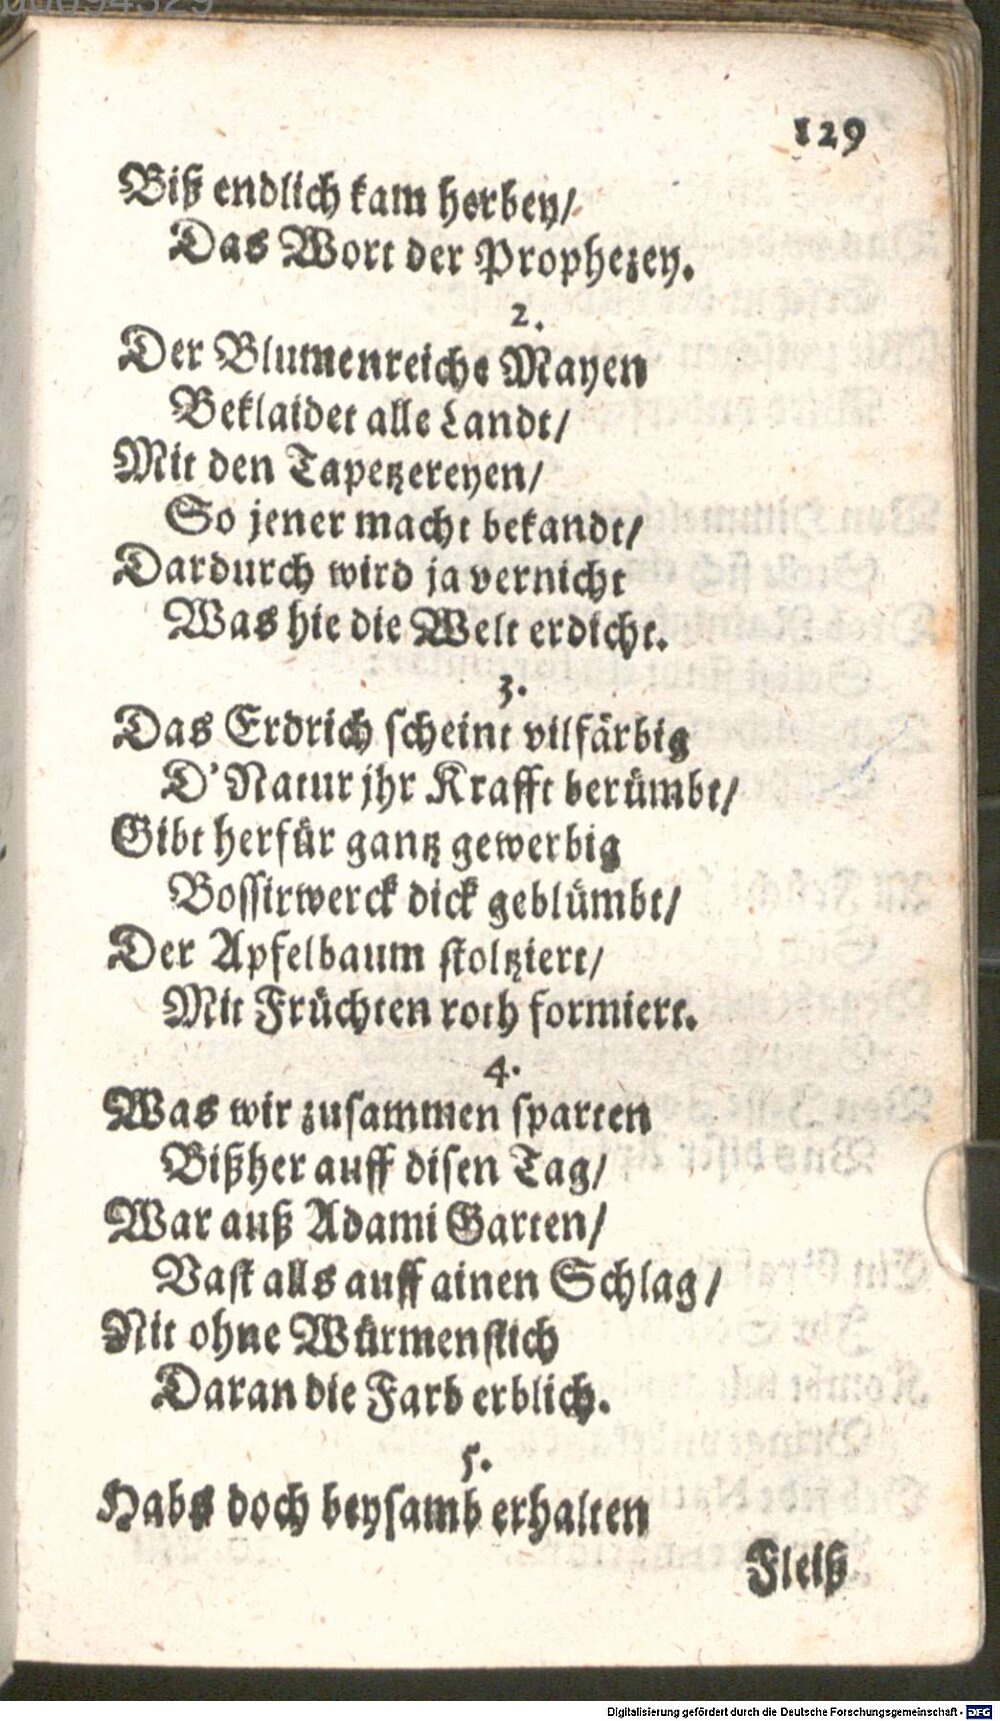 129
Biß endlich kam herbey/
Das Wort der Prophezey.
2.
Der Blumenreiche Mayen
Beklaidet alle Landt/
Mit den Tapetzereyen/
So jener macht bekandt/
Dardurch wird ja vernicht
Was hie die Welt erdicht.
3.
Das Erdrich scheint vilfärbig
D'Natur jhr Krafft berümbt/
Gibt herfür gantz gewerbig
Bossirwerck dick geblümbt/
Der Apfelbaum stoltziert/
Mit Früchten roth formiert.
4.
Was wir zusammen sparten
Bißher auff disen Tag/
War auß Adami Garten/
Vast alls auff ainen Schlag/
Nit ohne Würmenstich
Daran die Farb erblich.
5.
Habs doch beysamb erhalten
Fleiß
Digitalisierung gefördert durch die Deutsche Forschungsgemeinschaft - DFG